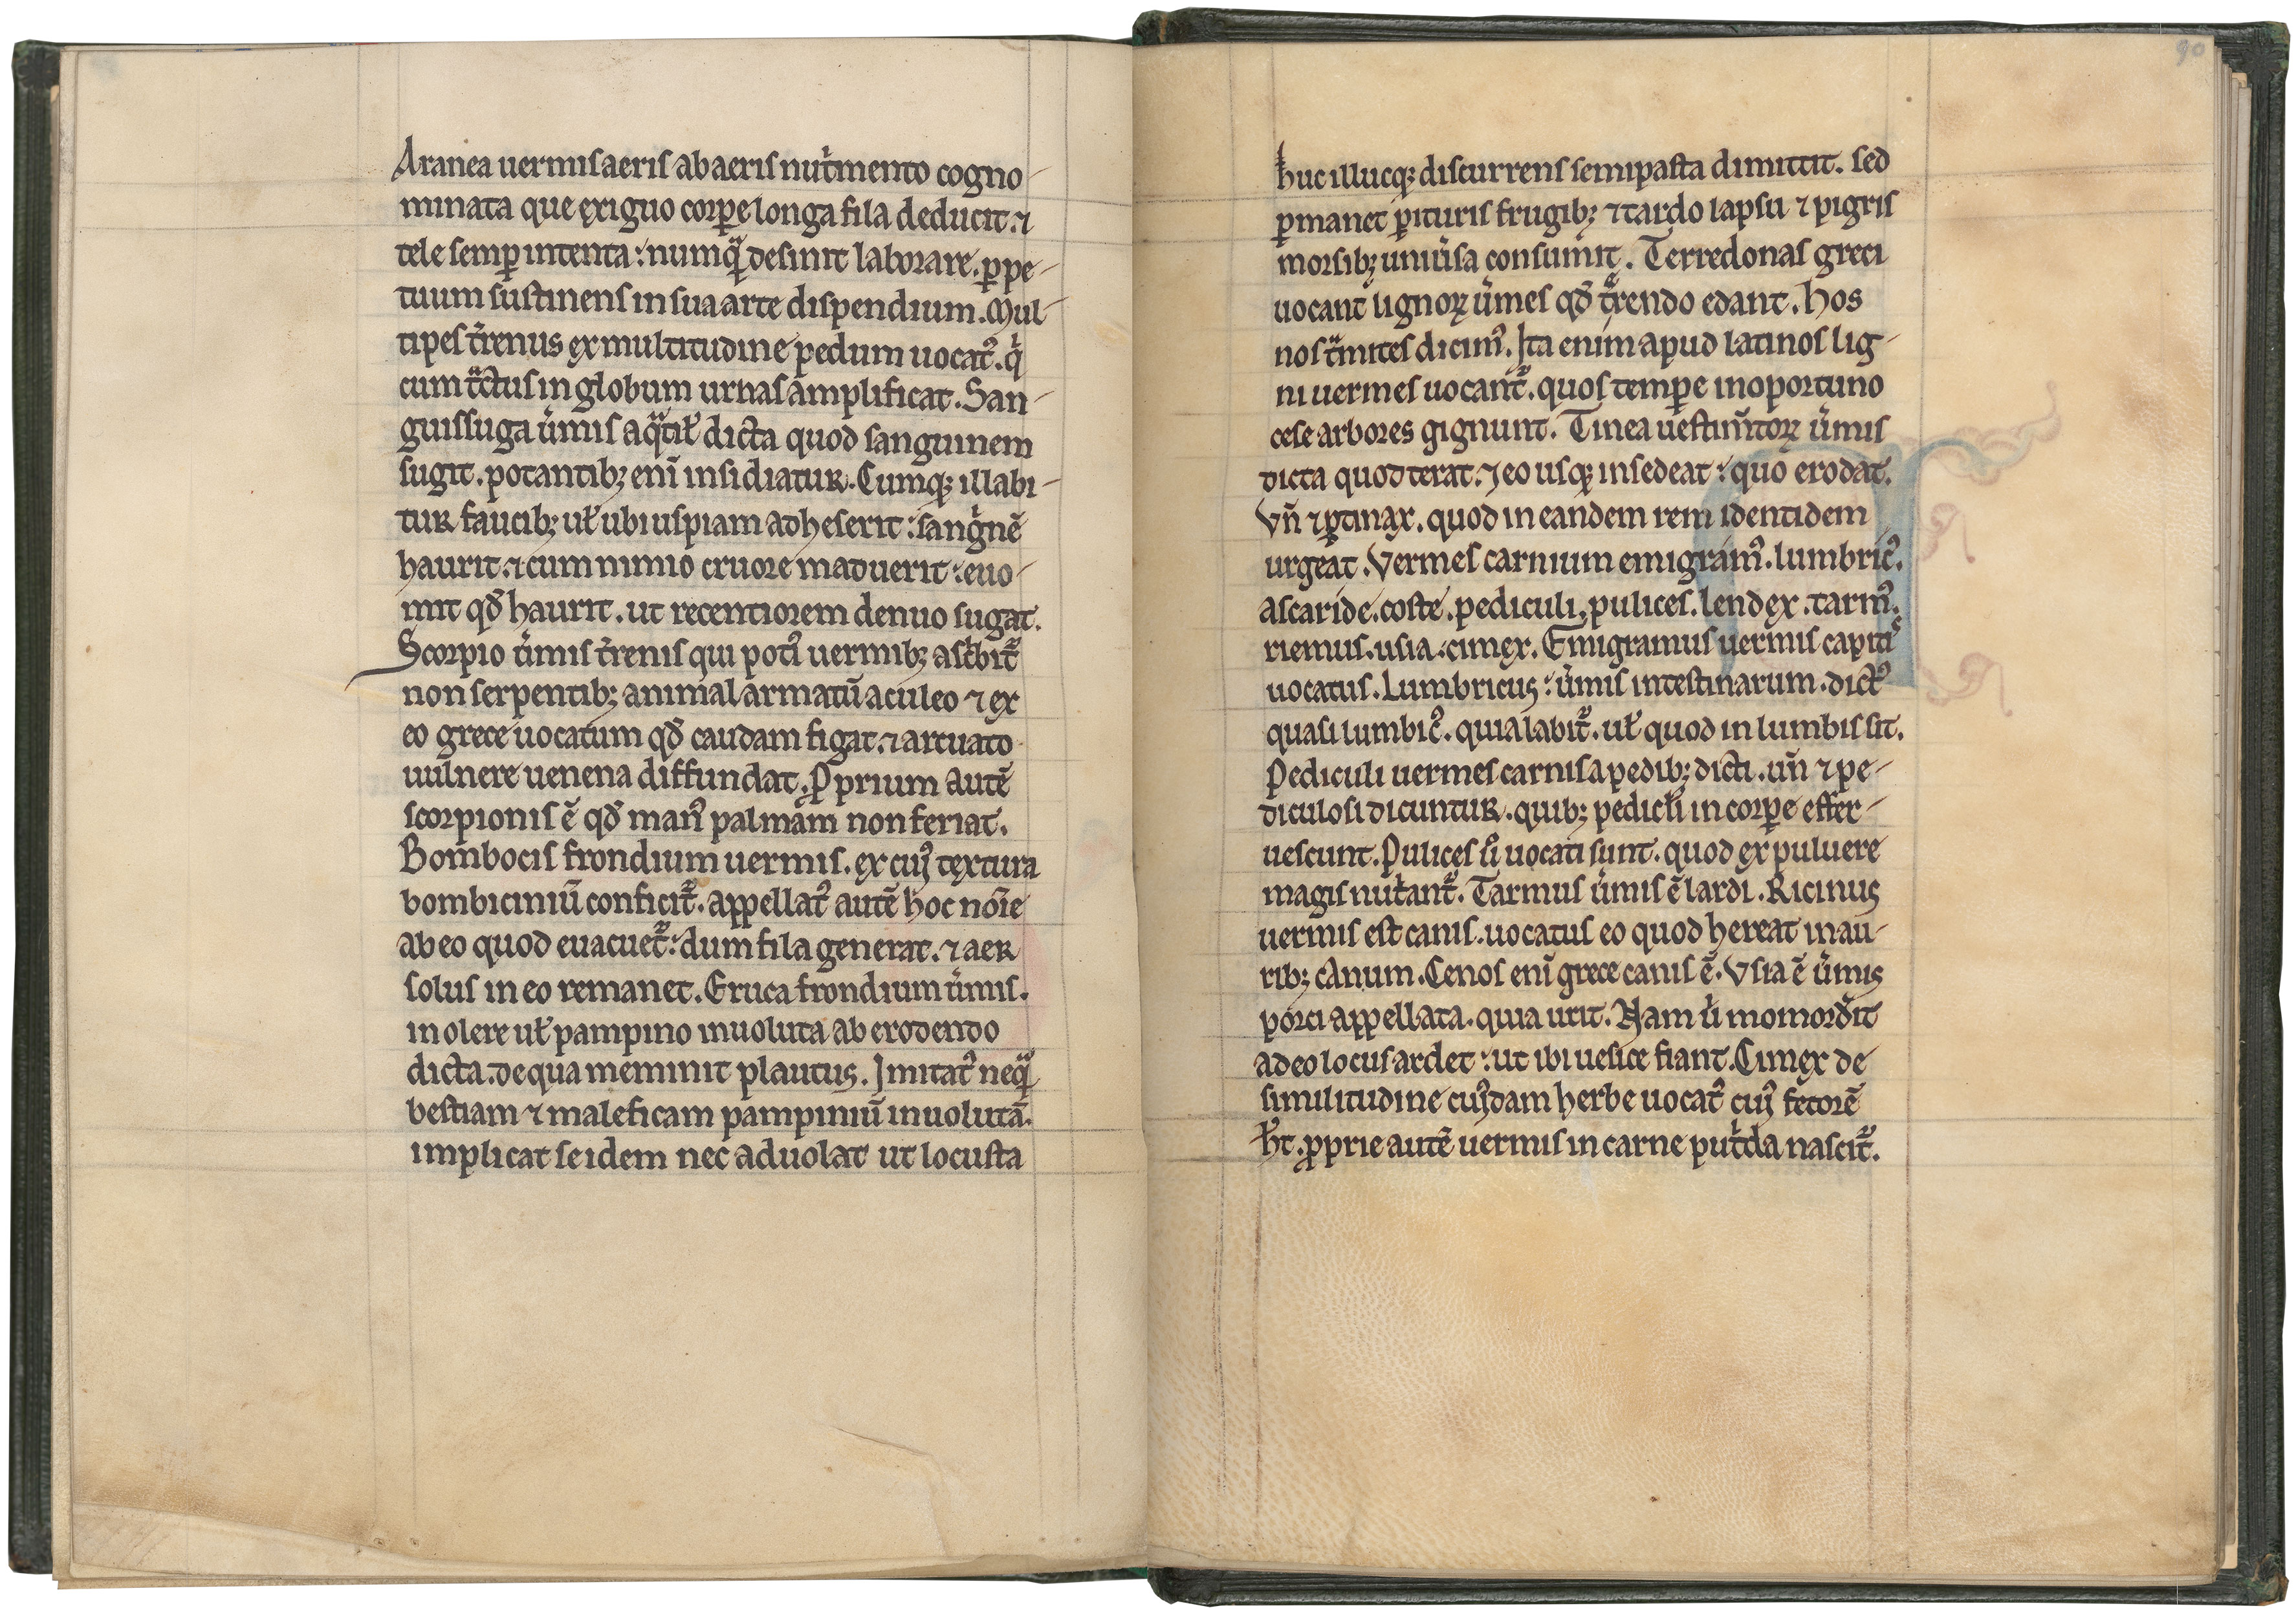 Aranea uermis aeris ab aeris nut̾mento cogno-
minata que exiguo corꝑe longa fila deducit. ⁊
tele semꝑ intenta: numqͣ desinit laborare. ꝑpe-
tuum sustinens in sua arte dispendium. Mul-
tipes t̾renus ex multitudine pedum uocat᷒. qͥ
cum tͣctus in globum urnas amplificat. San-
guissuga u̾mis aqͣtił dicta quod sanguinem
sugit. potantibꝫ eni̅ insidiatur. Cumqꝫ illabi-
tur faucibꝫ uł ubi uspiam adheserit: sangͥne̅
haurit. ⁊ cum nimio cruore maduerit: euo-
mit qđ haurit. ut recentiorem denuo sugat.
Scorpio u̾mis t̾renis qui potꝰ uermibꝫ asc̾bit᷒
non serpentibꝫ animal armatu̅ aculeo ⁊ ex
eo grece uocatum qđ caudam figat. ⁊ artuato
uulnere uenena diffundat. ꝓprium aute̅
scorpionis e̅ qđ manꝰ palmam non feriat.
Bombocis frondium uermis. ex cuiꝰ textura
bombiciniu̅ conficit᷒. appellat᷒ aute̅ hoc no̅ie
ab eo quod euacuet᷒: dum fila generat. ⁊ aer
solus in eo remanet. Eruca frondium u̾mis.
in olere uł pampino inuoluta ab erodendo
dicta. de qua meminit plautus. Imitat᷒ neqͣ
bestiam ⁊ maleficam pampiniu̅ inuoluta̅.
implicat se idem nec aduolat ut locusta
90
huc illucqꝫ discurrens semipasta dimittit. sed
ꝑmanet ꝑituris frugibꝫ ⁊ tardo lapsu ⁊ pigris
morsibꝫ uniu̾sa consumit. Terredonas greci
uocant lignoꝝ u̾mes qđ t̾rendo edant. hos
nos tͣmites dicimꝰ. Ita enim apud latinos lig-
ni uermes uocant᷒. quos temꝑe inoportuno
cese arbores gignunt. Tinea uestim̅toꝝ u̾mis
dicta quod terat. ⁊ eo usqꝫ insedeat: quo erodat.
Vn̅ ⁊ ꝑtinax. quod in eandem rem identidem
urgeat. Vermes carnium emigramꝰ. lumbricꝰ.
ascaride. coste. pediculi, pulices. lendex. tarmꝰ.
riemus. usia. cimex. Emigramus uermis capitiˢ
uocatus. Lumbricus: u̾mis intestinarum. dictꝰ
quasi lumbicꝰ. quia labit᷒. uł quod in lumbis sit.
Pediculi uermes carnis a pedibꝫ dicti. un̅ ⁊ pe-
diculosi dicuntur. quibꝫ pedicłi in corꝑe effer-
uescunt. Pulices ů uocati sunt. quod ex puluere
magis nut̾ant᷒. Tarmus u̾mis e̅ lardi. Ricinus
uermis est canis. uocatus eo quod hereat in au-
ribꝫ canum. Cenos eni̅ grece canis e̅. Vsia e̅ u̾mis
porci appellata. quia urit. Nam uͥ momord̾it
adeo locus ardet: ut ibi uesice fiant. Cimex de
similitudine cuiꝰdam herbe uocat᷒ cuiꝰ fetore̅
ħt. ꝓprie aute̅ uermis in carne putͥda nascit᷒.